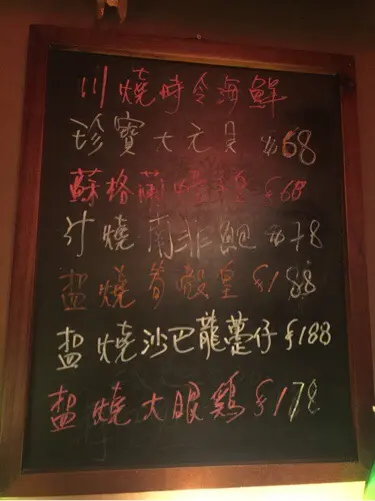 川燒時令海鮮
珍寶大元貝 $68
蘇格蘭 $68
汁燒南非鮑 $78
盐燒殼皇 $188
盐燒沙巴龍躉仔 $188
盐燒大眼鶏 $178